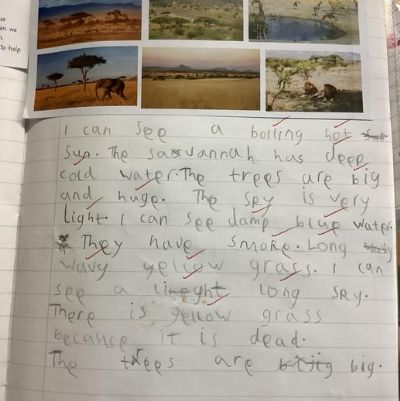 en we
to help
I can see a boiling hot
sun. The savannah has deep
cold water. The trees are big
and huge. The sky is very
light. I can see damp blue water.
They have smoke. Long
wavy yellow grass. I can
see a light long sky.
There is yellow grass
because it is dead.
The trees are big.